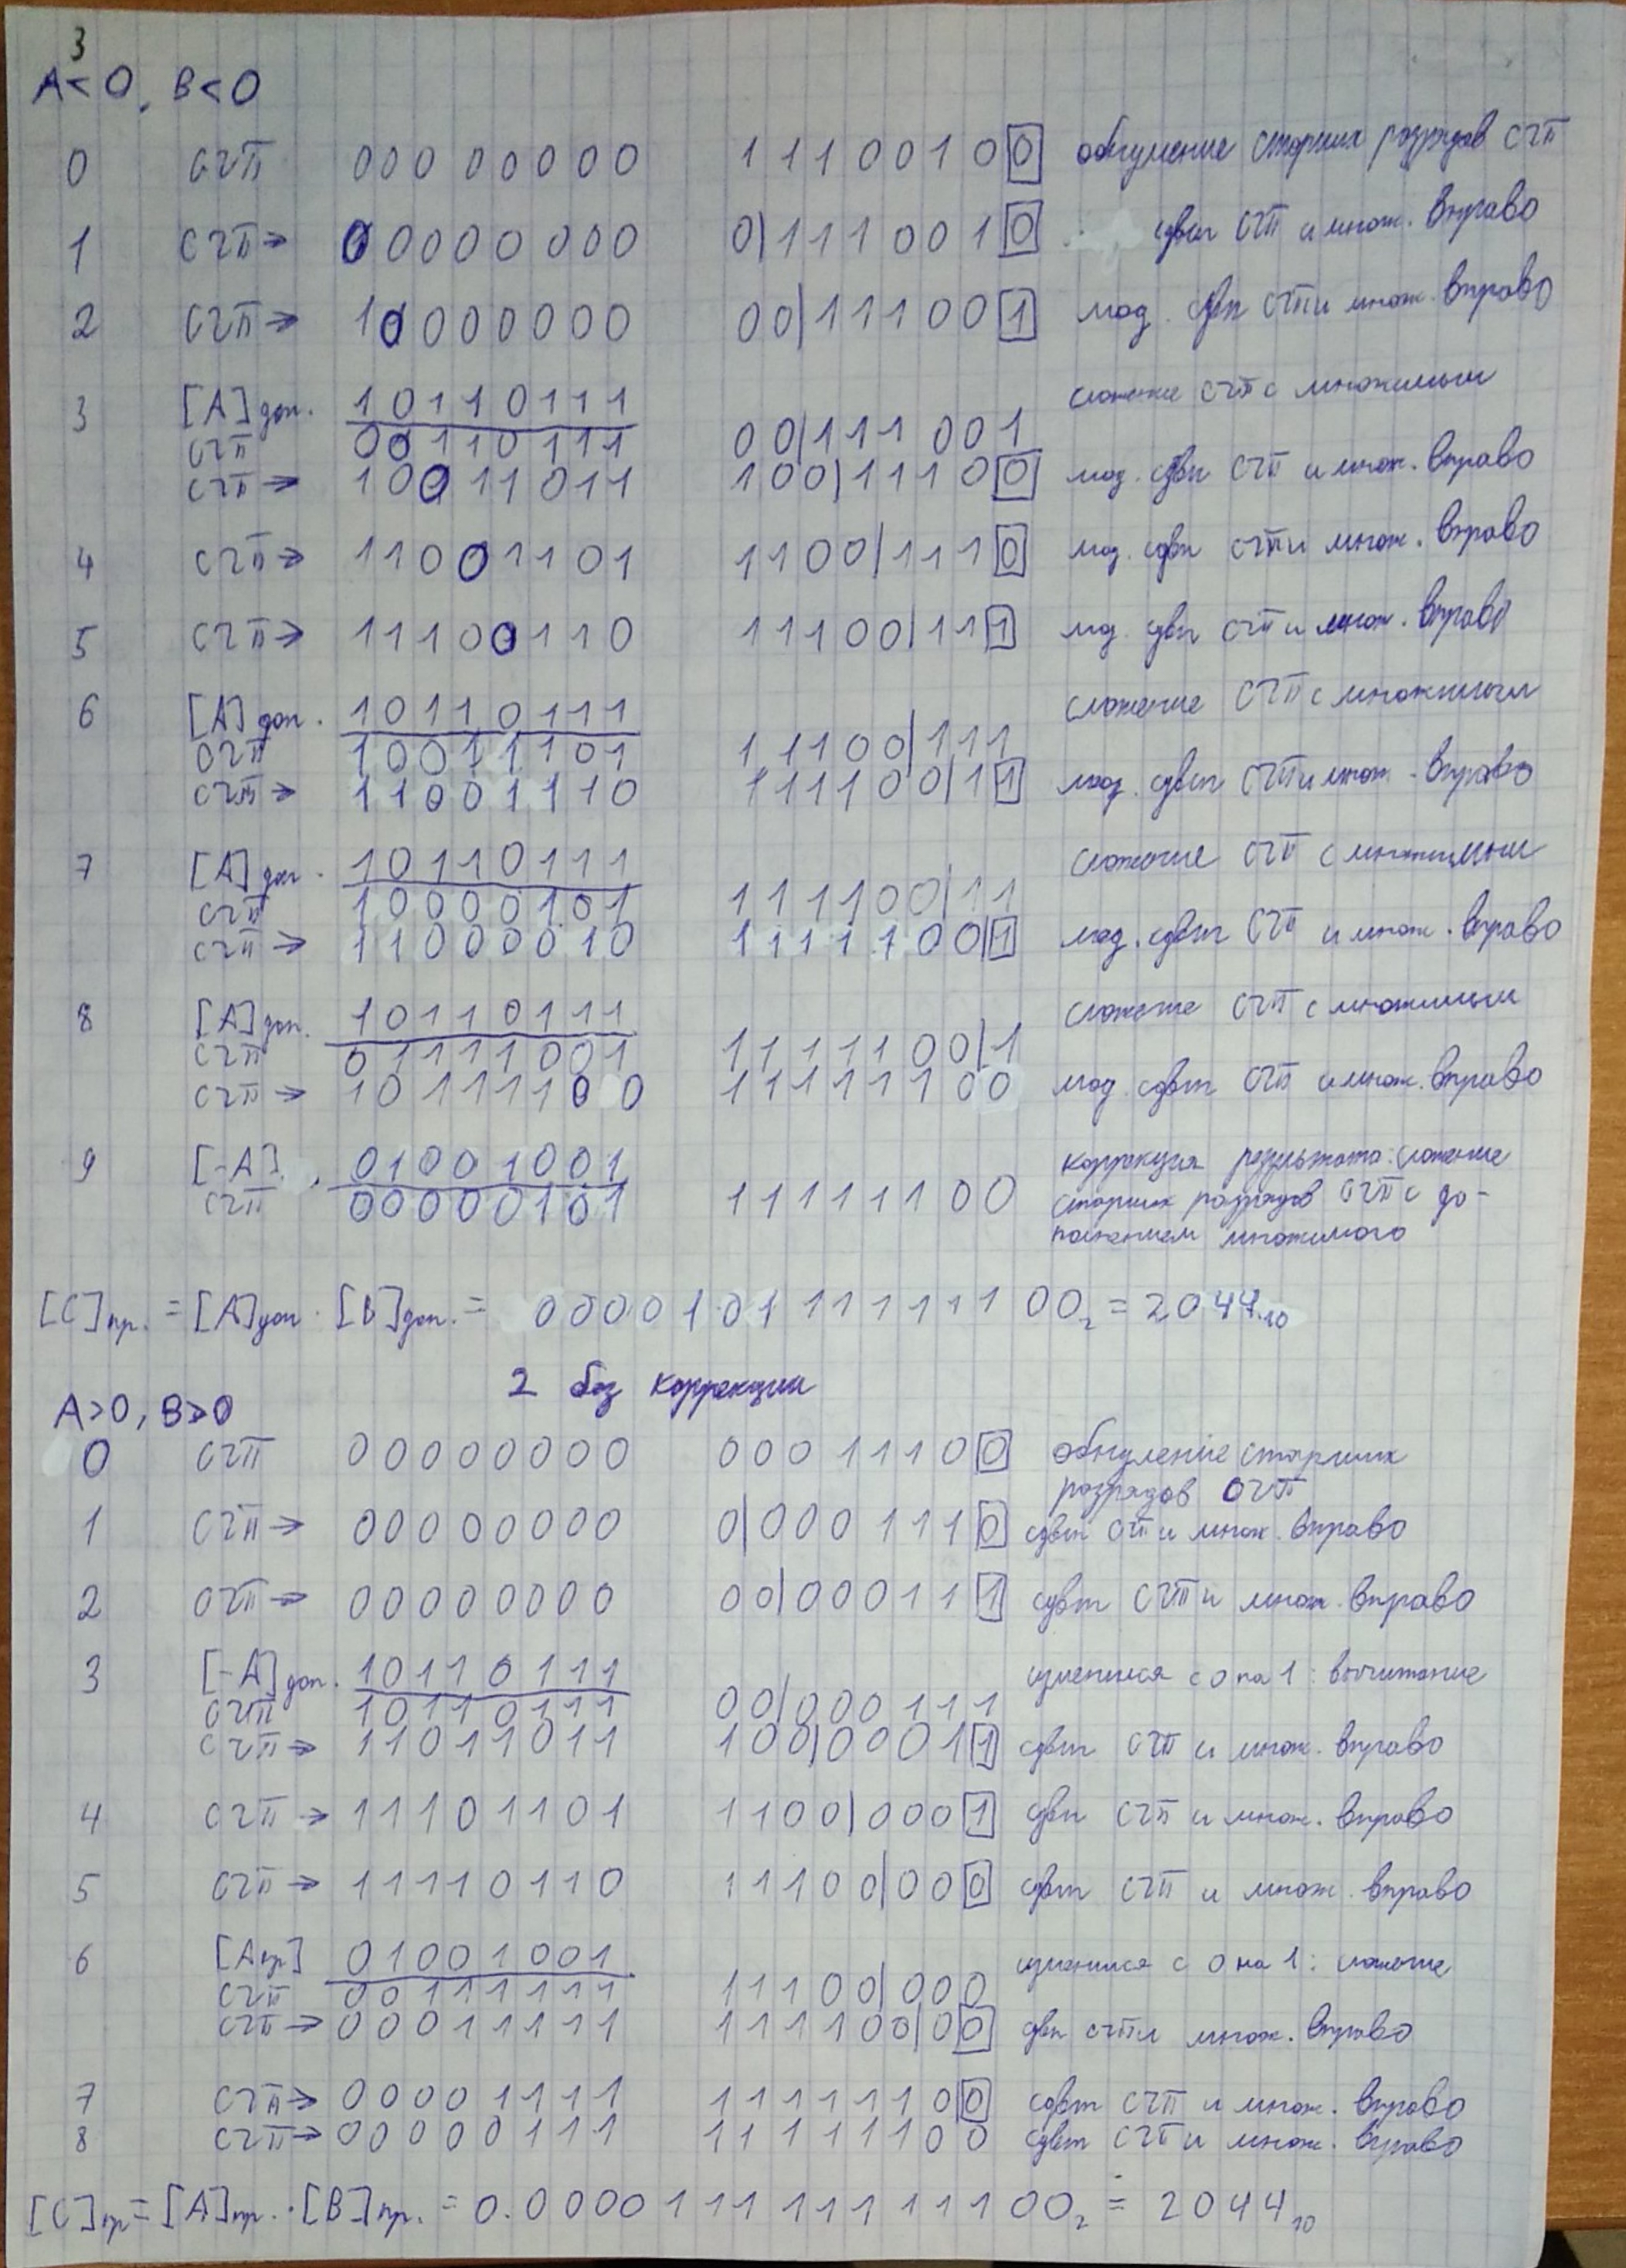 3
A<0, B<0
0 СЧП 00000000 11100100 обнуление старших разрядов СЧП
1 СЧП→ 00000000 0|1110010 сдвиг СЧП и множ. вправо
2 СЧП→ 10000000 00|111001 мод. сдвиг СЧП и множ. вправо
3 [A]доп. 10110111 сложение СЧП с множимым
СЧП 00110111 00|111001
СЧП→ 10011011 100|11100 мод. сдвиг СЧП и множ. вправо
4 СЧП→ 11001101 1100|1110 мод. сдвиг СЧП и множ. вправо
5 СЧП→ 11100110 11100|111 мод. сдвиг СЧП и множ. вправо
6 [A]доп. 10110111 сложение СЧП с множимым
СЧП 10011101 11100|111
СЧП→ 11001110 111100|11 мод. сдвиг СЧП и множ. вправо
7 [A]доп. 10110111 сложение СЧП с множимым
СЧП 10000101 111100|11
СЧП→ 11000010 1111100|1 мод. сдвиг СЧП и множ. вправо
8 [A]доп. 10110111 сложение СЧП с множимым
СЧП 01111001 1111100|1
СЧП→ 10111100 11111100 мод. сдвиг СЧП и множ. вправо
9 [-A] 01001001 коррекция результата: сложение
СЧП 00000101 11111100 старших разрядов СЧП с до-
полнением множимого
[C]пр. = [A]доп · [B]доп. = 0000101 11111100₂ = 2044.₁₀
2 без коррекции
A>0, B>0
0 СЧП 00000000 00011100 обнуление старших
разрядов СЧП
1 СЧП→ 00000000 0|0001110 сдвиг СЧП и множ. вправо
2 СЧП→ 00000000 00|000111 сдвиг СЧП и множ. вправо
3 [-A]доп. 10110111 изменился с 0 на 1: вычитание
СЧП 10110111 00|000111
СЧП→ 11011011 100|00011 сдвиг СЧП и множ. вправо
4 СЧП→ 11101101 1100|0001 сдвиг СЧП и множ. вправо
5 СЧП→ 11110110 11100|000 сдвиг СЧП и множ. вправо
6 [Aпр] 01001001 изменился с 0 на 1: сложение
СЧП 00111111 11100|000
СЧП→ 00011111 111100|00 сдвиг СЧП и множ. вправо
7 СЧП→ 00001111 11111100 сдвиг СЧП и множ. вправо
8 СЧП→ 00000111 11111100 сдвиг СЧП и множ. вправо
[C]пр = [A]пр. · [B]пр. = 0.0000111 11111100₂ = 2044₁₀